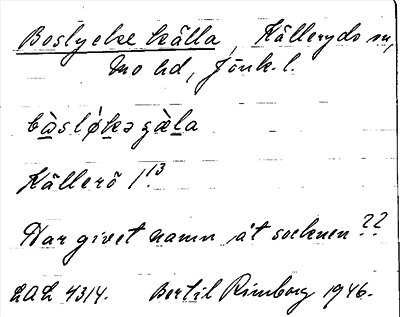 Boslycke källa, Källeryds sn,
Mo hd, Jönk. l.
bàslø̀kə gæ̀la
Källerö 1.13
Har givet namn åt socknen??
LAL 4314. Bertil Rimborg 1946.